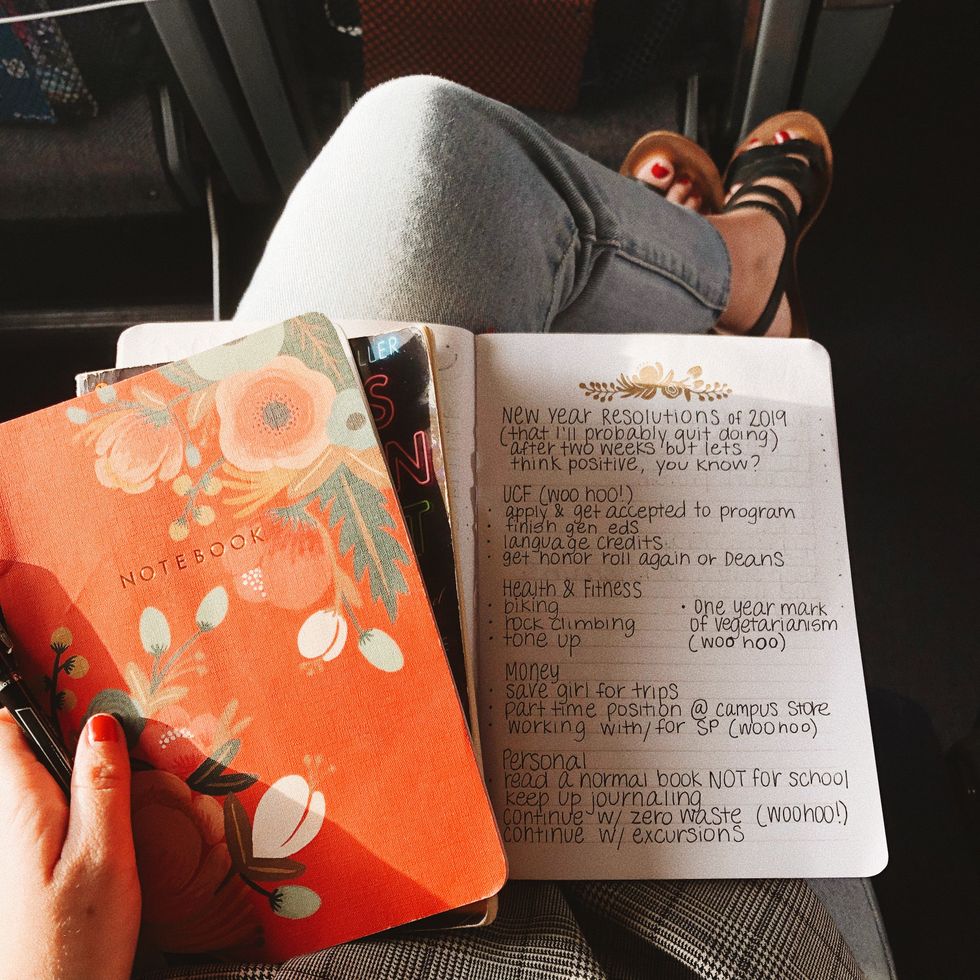 NOTEBOOK
LLER
S
N
T
New Year Resolutions of 2019
(that I'll probably quit doing)
after two weeks but lets
think positive, you know?
UCF (woo hoo!)
· apply & get accepted to program
· finish gen eds
· language credits
· get honor roll again or Deans
Health & Fitness
· biking
· rock climbing
· tone up
· One year mark
of vegetarianism
(woo hoo)
Money
· save girl for trips
· part time position @ campus store
· working with/for SP (woohoo)
Personal
· read a normal book NOT for school
· keep up journaling
· continue w/ zero waste (woohoo!)
· continue w/ excursions